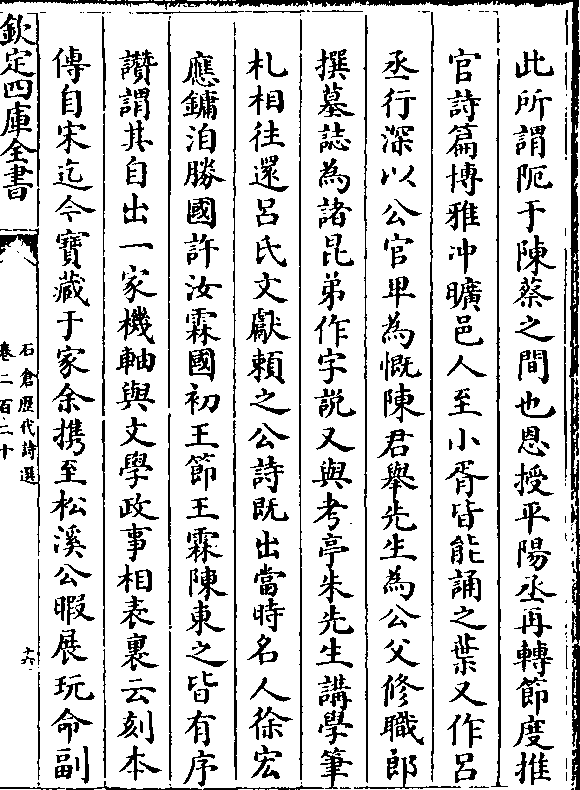 此所謂阨于陳蔡之間也恩授平陽丞再轉節度推
官詩篇博雅冲曠邑人至小胥皆能誦之葉又作呂
丞行深以公官卑為慨陳君舉先生為公父修職郎
撰墓誌為諸昆弟作字説又與考亭朱先生講學筆
札相往還呂氏文獻賴之公詩既出當時名人徐宏
應鏞洎勝國許汝霖國初王節王霖陳東之皆有序
讚謂其自出一家機軸與文學政事相表裏云刻本
傳自宋迄今寶藏于家余携至松溪公暇展玩命副
欽定四庫全書
石倉歴代詩選
卷二百二十
十六